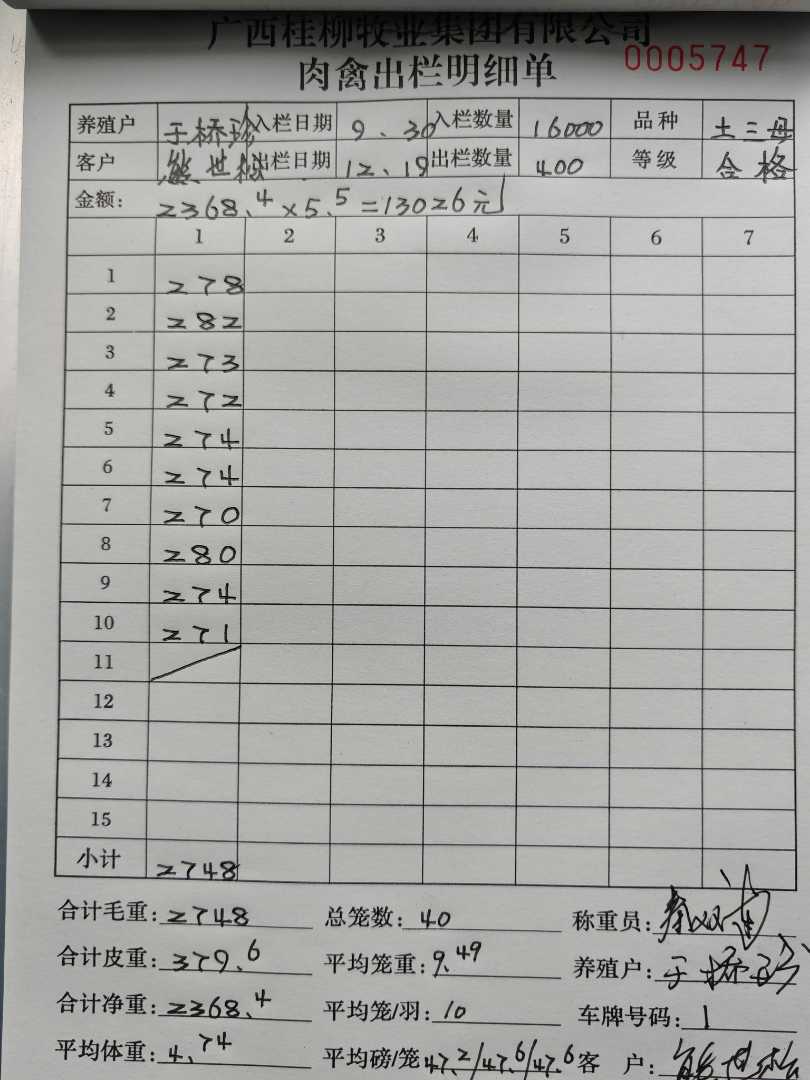 广西桂柳牧业集团有限公司
肉禽出栏明细单 0005747
养殖户 于桥珍 入栏日期 9.30 入栏数量 16000 品种 土三母
客户 熊世松 出栏日期 12.19 出栏数量 400 等级 合格
金额: 2368.4×5.5=13026元
1 2 3 4 5 6 7
1 278
2 282
3 273
4 272
5 274
6 274
7 270
8 280
9 274
10 271
11
12
13
14
15
小计 2748
合计毛重: 2748 总笼数: 40 称重员:
合计皮重: 379.6 平均笼重: 9.49 养殖户: 于桥珍
合计净重: 2368.4 平均笼/羽: 10 车牌号码: 1
平均体重: 4.74 平均磅/笼 47.2/47.6/47.6 客 户: 熊世松